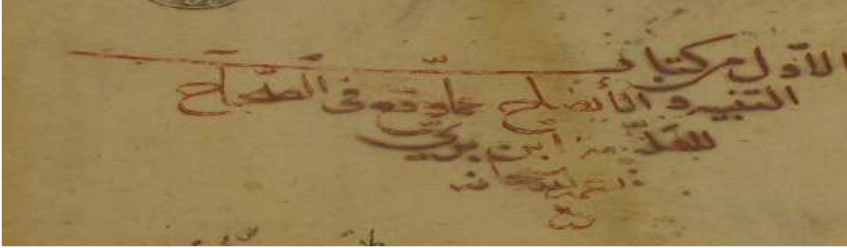 الأول من كتاب
التنبيه والأيضاح عما وقع في الصحاح
للعلامة ابن بري